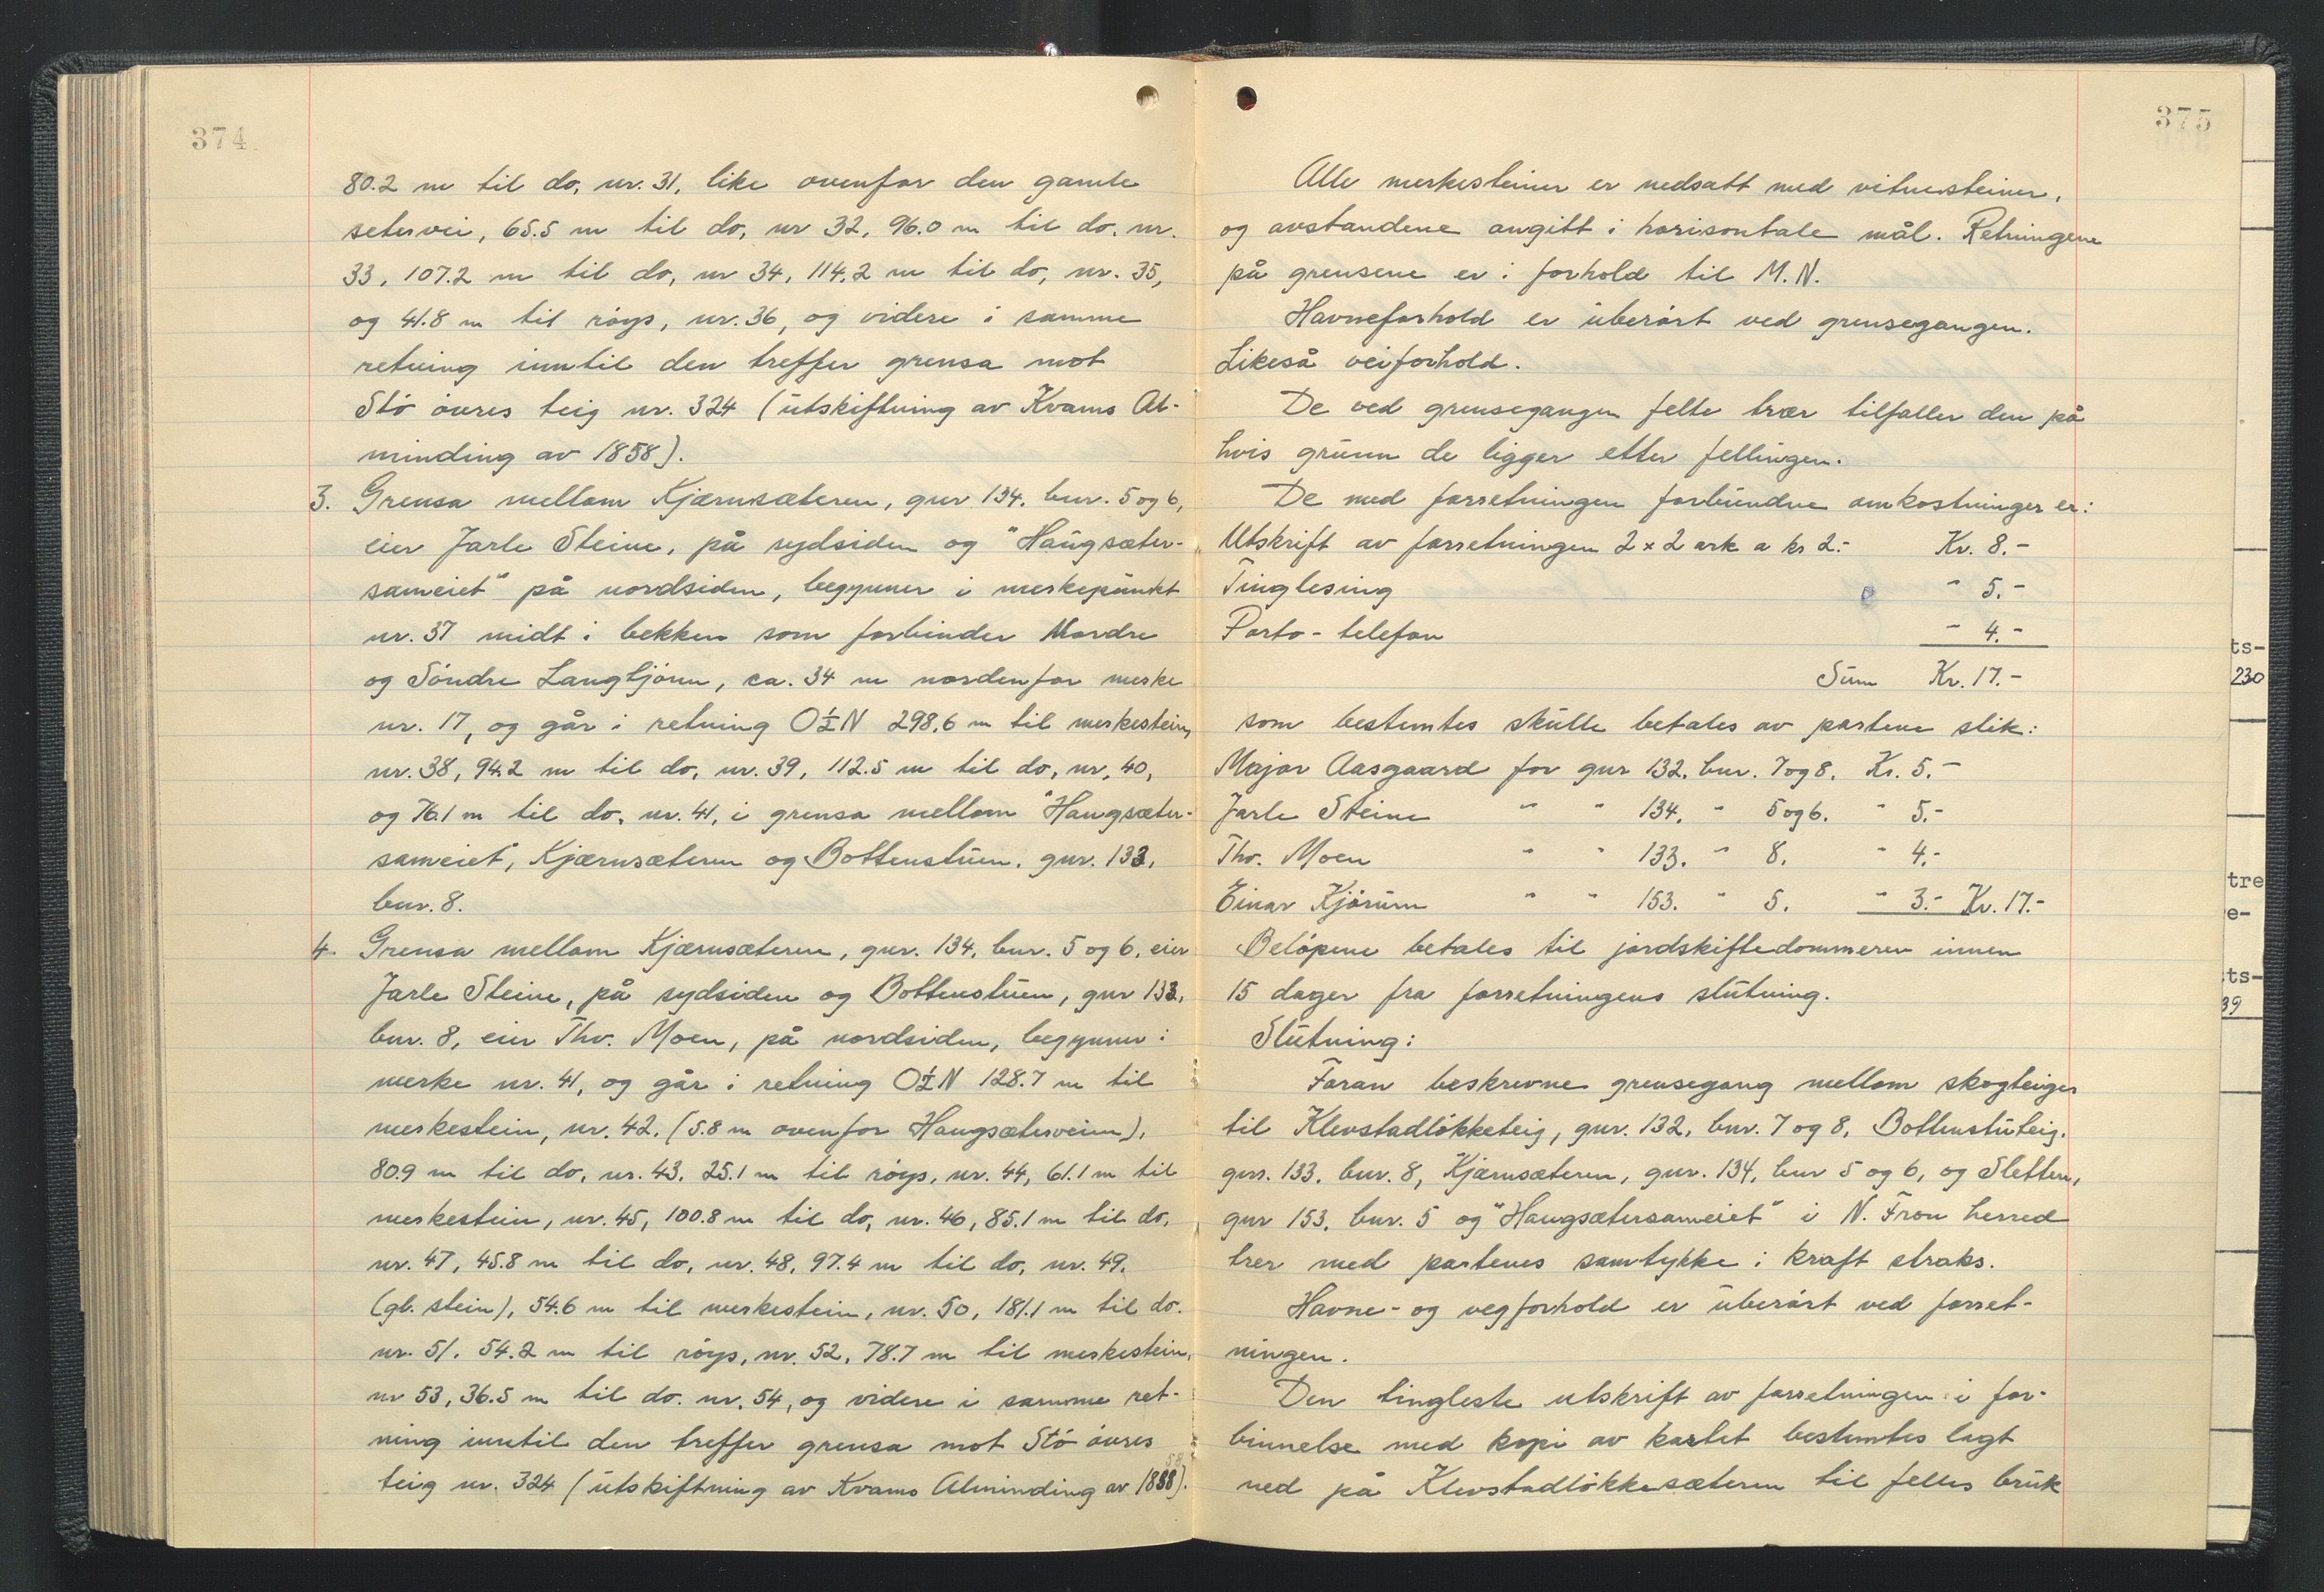 374
80.2 m til do, nr. 31, like ovenfor den gamle
setervei, 65.5 m til do, nr 32, 96.0 m til do. nr.
33, 107.2 m til do, nr 34, 114.2 m til do, nr. 35,
og 41.8 m til röys, nr. 36, og videre i samme
retning inntil den treffer grensa mot
Stö övres teig nr. 324 (utskiftning av Kvams Al-
minding av 1858).
3. Grensa mellom Kjærnsæteren, gnr 134, bnr. 5 og 6,
eier Jarle Steine, på sydsiden og "Haugsæter-
sameiet" på nordsiden, begynner i merkepunkt
nr. 37 midt i bekken som forbinder Nordre
og Söndre Langtjönn, ca. 34 m nordenfor merke
nr. 17, og går i retning O½N 298.6 m til merkestein,
nr. 38, 94.2 m til do, nr. 39, 112.5 m til do, nr, 40,
og 76.1 m til do, nr. 41, i grensa mellom "Haugsæter-
sameiet", Kjærnsæteren og Bottenstuen, gnr. 133,
bnr. 8.
4. Grensa mellom Kjærnsæteren, gnr. 134, bnr. 5 og 6, eier
Jarle Steine, på sydsiden og Bottenstuen, gnr 133,
bnr. 8, eier Thv. Moen, på nordsiden, begynner i
merke nr. 41, og går i retning O½N 128.7 m til
merkestein, nr. 42. (5.8 m ovenfor Haugsæterveien),
80.9 m til do, nr. 43, 25.1 m til röys, nr. 44, 61.1 m til
merkestein, nr. 45, 100.8 m til do, nr. 46, 85.1 m til do,
nr. 47, 45.8 m til do, nr. 48, 97.4 m til do, nr. 49.
(gl. stein), 54.6 m til merkestein, nr. 50, 181.1 m til do.
nr. 51. 54.2 m til röys, nr. 52, 78.7 m til merkestein,
nr 53, 36.5 m til do. nr. 54, og videre i samme ret-
ning inntil den treffer grensa mot Stö övres
teig nr. 324 (utskiftning av Kvams Alminding av 1858).
375
Alle merkesteiner er nedsatt med vitnesteiner,
og avstandene angitt i horisontale mål. Retningene
på grensene er i forhold til M.N.
Havneforhold er uberört ved grensegangen.
Likeså veiforhold.
De ved grensegangen felte trær tilfaller den på
hvis grunn de ligger etter fellingen.
De med forretningen forbundne omkostninger er:
Utskrift av forretningen 2 x 2 ark a kr 2.- Kr. 8.-
Tinglesing " 5.-
Porto - telefon " 4.-
Sum Kr. 17.-
som bestemtes skulle betales av partene slik:
Major Aasgaard for gnr 132, bnr. 7 og 8. Kr. 5.-
Jarle Steine " " 134, " 5 og 6. " 5.-
Thv. Moen " " 133. " 8. " 4.-
Einar Kjörum " " 153. " 5. " 3.- Kr. 17.-
Belöpene betales til jordskiftedommeren innen
15 dager fra forretningens slutning.
Slutning:
Foran beskrevne grensegang mellom skogteiger
til Klevstadlökketeig, gnr. 132, bnr. 7 og 8, Bottenstuteig.
gnr. 133, bnr. 8, Kjærnsæteren, gnr. 134, bnr 5 og 6, og Sletten,
gnr 153, bnr. 5 og "Haugsætersameiet" i N. Fron herred
trer med partenes samtykke i kraft straks.
Havne- og vegforhold er uberört ved forret-
ningen.
Den tingleste utskrift av forretningen i for-
binnelse med kopi av kartet bestemtes lagt
ned på Klevstadlökkesæteren til felles bruk
ts-
230
tre
e-
ts-
39